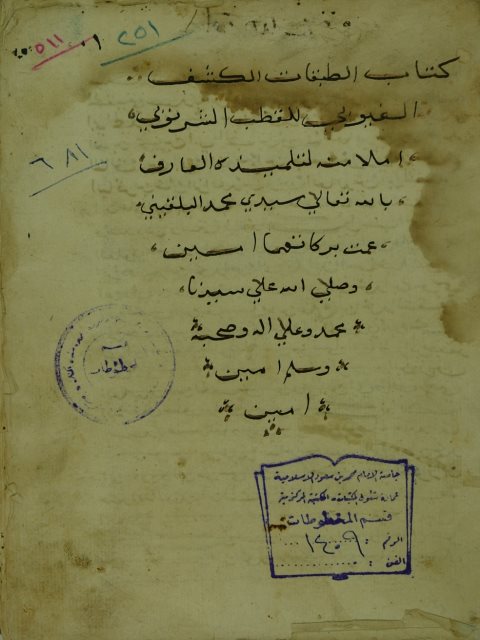 ٥١١
٢٥١
كتاب الطبقات الكشف
الغيوبي للقطب الشرنوبي
املا منه لتلميذه العارف
بالله تعالي سيدي محمد البلقيني
عمت بركاتهما امين
وصلي الله علي سيدنا
محمد وعلي اله وصحبه
وسلم امين
امين
٦٨١
قسم المخطوطات
جامعة الامام محمد بن سعود الاسلامية
عمادة شئون المكتبات - المكتبة المركزية
قسم المخطوطات
الرقم : ١٤٠٩
الفن :